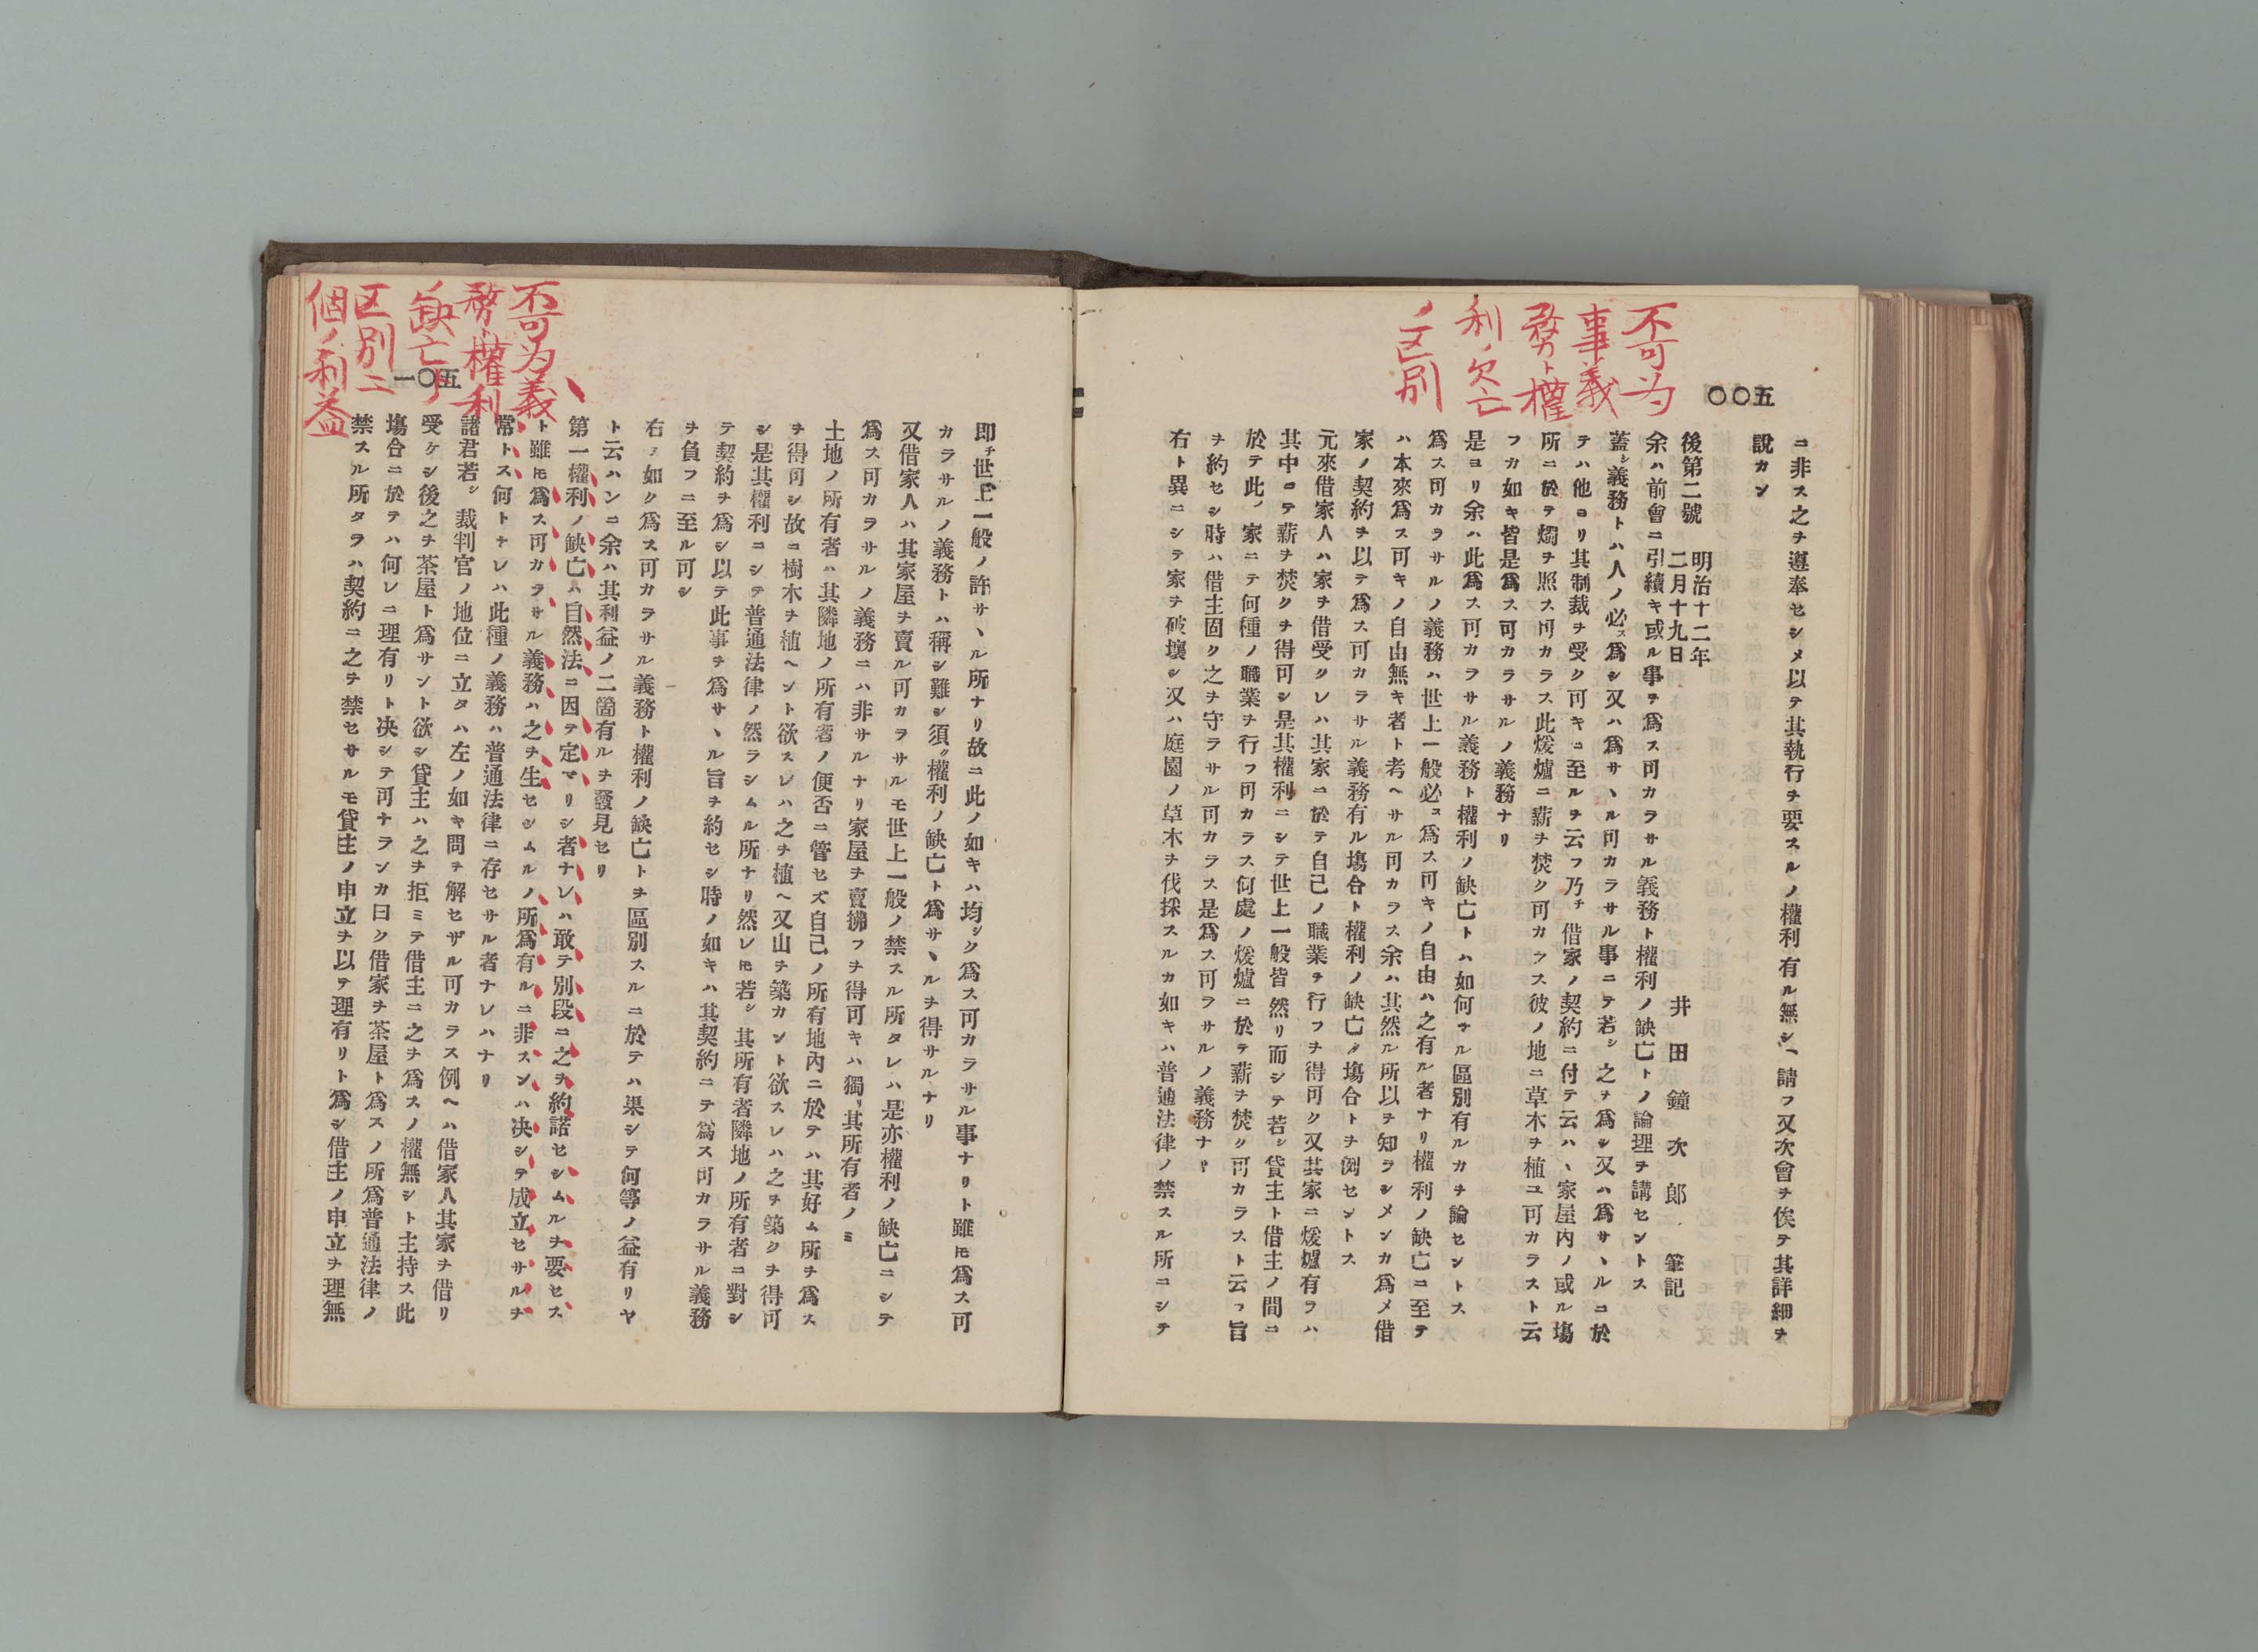 不可为
事義
務ト權
利ノ欠亡
ノ区別
五〇〇
ニ非ス之ヲ遵奉セシメ以テ其執行ヲ要スルノ權利有ル無シ、請フ又次會ヲ俟テ其詳細ヲ
說カン
後第二號
明治十二年
二月十九日
井田鐘次郎 筆記
余ハ前會ニ引續キ或ル事ヲ爲ス可カラサル義務ト權利ノ缺亡トノ論理ヲ講セントス
蓋シ義務トハ人ノ必ス爲シ又ハ爲サヽル可カラサル事ニテ若シ之ヲ爲シ又ハ爲サヽルニ於
テハ他ヨリ其制裁ヲ受ク可キニ至ルヲ云フ乃チ借家ノ契約ニ付テ云ハヽ家屋內ノ或ル塲
所ニ於テ燭ヲ照ス可カラス此煖爐ニ薪ヲ焚ク可カラス彼ノ地ニ草木ヲ植ユ可カラスト云
フカ如キ皆是爲ス可カラサルノ義務ナリ
是ヨリ余ハ此爲ス可カラサル義務ト權利ノ缺亡トハ如何ナル區別有ルカヲ論セントス
爲ス可カラサルノ義務ハ世上一般必ス爲ス可キノ自由ハ之有ル者ナリ權利ノ缺亡ニ至テ
ハ本來爲ス可キノ自由無キ者ト考ヘサル可カラス余ハ其然ル所以ヲ知ラシメンカ爲メ借
家ノ契約ヲ以テ爲ス可カラサル義務有ル塲合ト權利ノ缺亡ノ塲合トヲ例セントス
元來借家人ハ家ヲ借受クレハ其家ニ於テ自己ノ職業ヲ行フヲ得可ク又其家ニ煖爐有ラハ
其中ニテ薪ヲ焚クヲ得可シ是其權利ニシテ世上一般皆然リ而シテ若シ貸主ト借主ノ間ニ
於テ此ノ家ニテ何種ノ職業ヲ行フ可カラス何處ノ煖爐ニ於テ薪ヲ焚ク可カラスト云フ旨
ヲ約セシ時ハ借主固ク之ヲ守ラサル可カラス是爲ス可ラサルノ義務ナリ
右ト異ニシテ家ヲ破壞シ又ハ庭園ノ草木ヲ伐採スルカ如キハ普通法律ノ禁スル所ニシテ
不可为義
務ト權利
缺亡ト
区別ニ
個ノ利益
五〇一
即チ世上一般ノ許サヽル所ナリ故ニ此ノ如キハ均シク爲ス可カラサル事ナリト雖𪜈爲ス可
カラサルノ義務トハ稱シ難シ須ク權利ノ缺亡ト爲サヽルヲ得サルナリ
又借家人ハ其家屋ヲ賣ル可カラサルモ世上一般ノ禁スル所タレハ是亦權利ノ缺亡ニシテ
爲ス可カラサルノ義務ニハ非サルナリ家屋ヲ賣拂フヲ得可キハ獨リ其所有者ノミ
土地ノ所有者ハ其隣地ノ所有者ノ便否ニ管セズ自己ノ所有地內ニ於テハ其好ム所ヲ爲ス
ヲ得可シ故ニ樹木ヲ植ヘント欲スレハ之ヲ植ヘ又山ヲ築カント欲スレハ之ヲ築クヲ得可
シ是其權利ニシテ普通法律ノ然ラシムル所ナリ然レ𪜈若シ其所有者隣地ノ所有者ニ對シ
テ契約ヲ爲シ以テ此事ヲ爲サヽル旨ヲ約セシ時ノ如キハ其契約ニテ爲ス可カラサル義務
ヲ負フニ至ル可シ
右ノ如ク爲ス可カラサル義務ト權利ノ缺亡トヲ區別スルニ於テハ果シテ何等ノ益有リヤ
ト云ハンニ余ハ其利益ノ二箇有ルヲ發見セリ
第一權利ノ缺亡ハ自然法ニ因テ定マリシ者ナレハ敢テ別段ニ之ヲ約諾セシムルヲ要セス
ト雖𪜈爲ス可カラサル義務ハ之ヲ生セシムルノ所爲有ルニ非スンハ決シテ成立セサルヲ
常トス何トナレハ此種ノ義務ハ普通法律ニ存セサル者ナレハナリ
諸君若シ裁判官ノ地位ニ立タハ左ノ如キ問ヲ解セザル可カラス例ヘハ借家人其家ヲ借リ
受ケシ後之ヲ茶屋ト爲サント欲シ貸主ハ之ヲ拒ミテ借主ニ之ヲ爲スノ權無シト主持ス此
塲合ニ於テハ何レニ理有リト決シテ可ナランカ曰ク借家ヲ茶屋ト爲スノ所爲普通法律ノ
禁スル所タラハ契約ニ之ヲ禁セサルモ貸主ノ申立ヲ以テ理有リト爲シ借主ノ申立ヲ理無